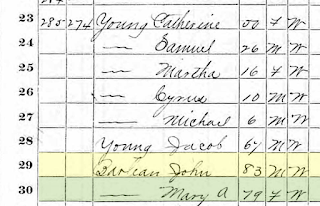 23 285 274 Young Catherine 50 F W
24 — Samuel 26 M W
25 — Martha 16 F W
26 — Cyrus 10 M W
27 — Michael 6 M W
28 Young Jacob 67 M W
29 John 83 M W
30 — Mary A 79 F W